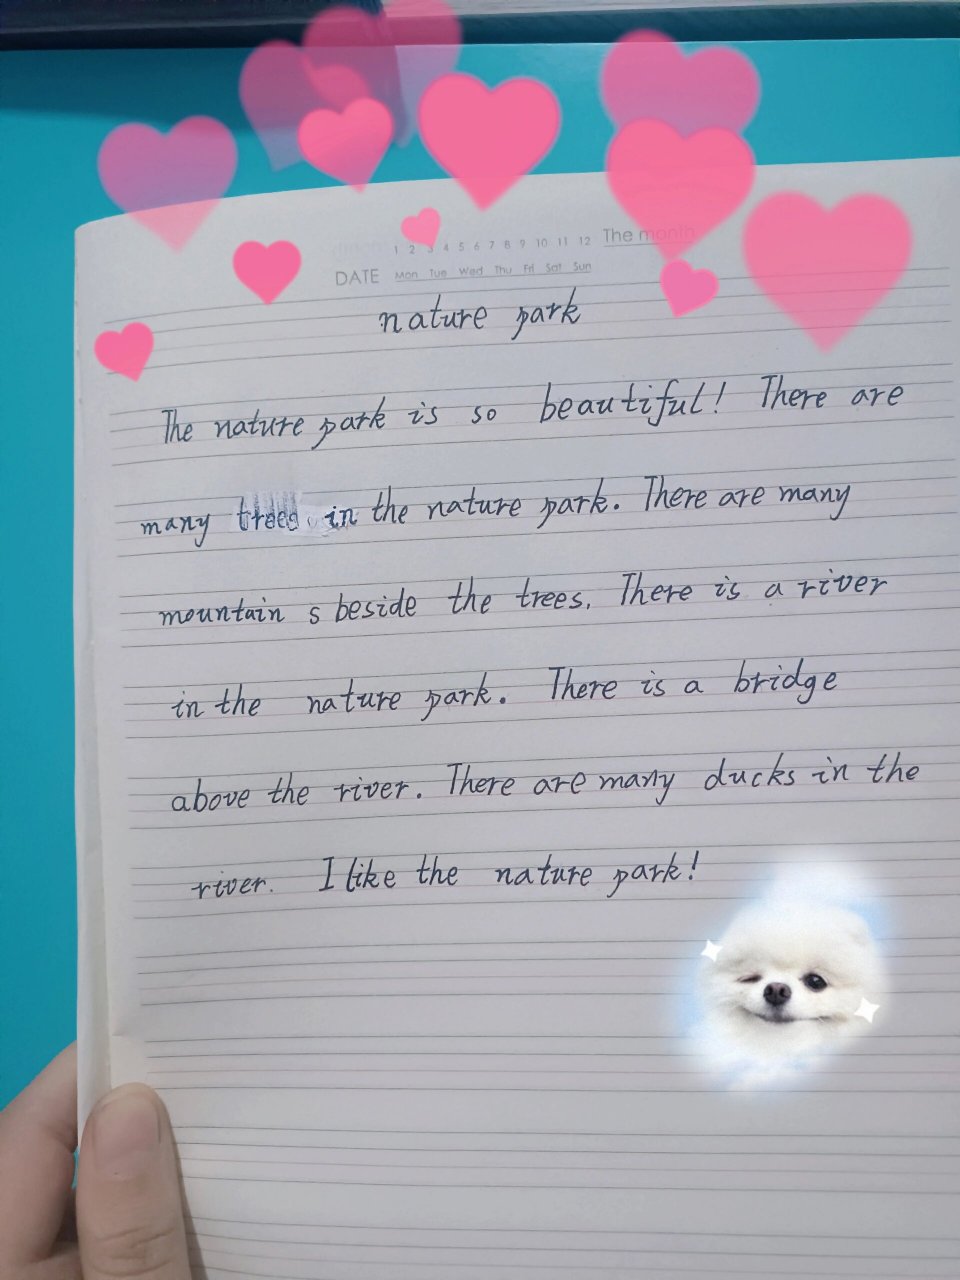 1 2 3 4 5 6 7 8 9 10 11 12 The month
DATE Mon Tue Wed Thu Fri Sat Sun
nature park
The nature park is so beautiful! There are
many trees in the nature park. There are many
mountain s beside the trees. There is a river
in the nature park. There is a bridge
above the river. There are many ducks in the
river. I like the nature park!